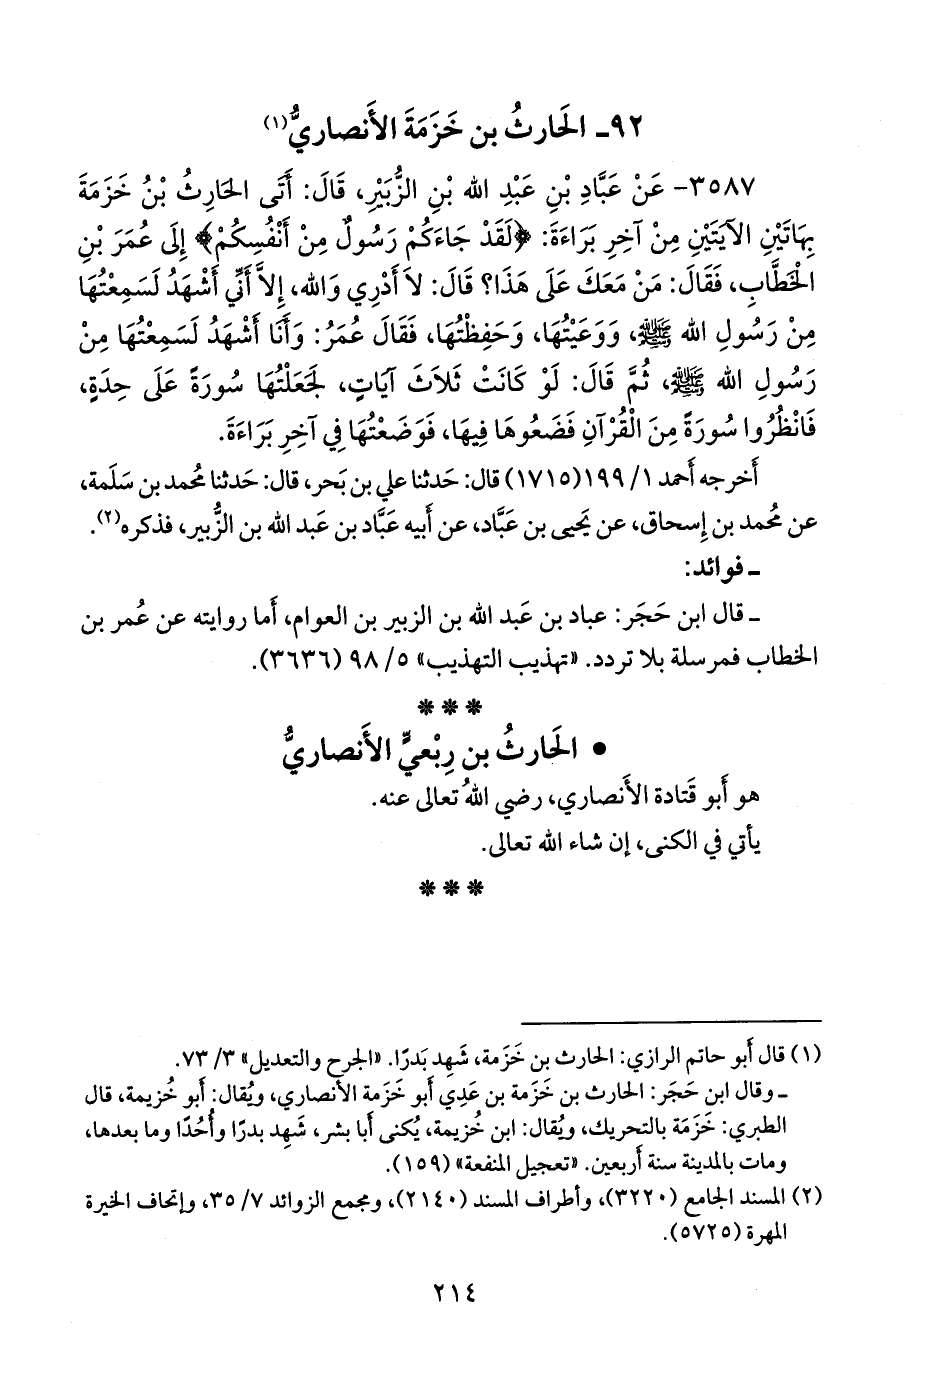 ٩٢- الحَارثُ بن خَزَمَةَ الأَنصاريُّ(١)
٣٥٨٧- عَنْ عَبَّادِ بْنِ عَبْدِ الله بْنِ الزُّبَيْرِ، قَالَ: أَتَى الحَارِثُ بْنُ خَزَمَةَ
بِهَاتَيْنِ الآيَتَيْنِ مِنْ آخِرِ بَرَاءَةَ: ﴿لَقَدْ جَاءَكُمْ رَسُولٌ مِنْ أَنْفُسِكُمْ﴾ إِلَى عُمَرَ بْنِ
الْخَطَّابِ، فَقَالَ: مَنْ مَعَكَ عَلَى هَذَا؟ قَالَ: لاَ أَدْرِي وَالله، إِلاَّ أَنِّي أَشْهَدُ لَسَمِعْتُهَا
مِنْ رَسُولِ الله ﷺ، وَوَعَيْتُهَا، وَحَفِظْتُهَا، فَقَالَ عُمَرُ: وَأَنَا أَشْهَدُ لَسَمِعْتُهَا مِنْ
رَسُولِ الله ﷺ، ثُمَّ قَالَ: لَوْ كَانَتْ ثَلاَثَ آيَاتٍ، لَجَعَلْتُهَا سُورَةً عَلَى حِدَةٍ،
فَانْظُرُوا سُورَةً مِنَ الْقُرْآنِ فَضَعُوهَا فِيهَا، فَوَضَعْتُهَا فِي آخِرِ بَرَاءَةَ.
أَخرجه أَحمد ١/ ١٩٩(١٧١٥) قال: حَدثنا علي بن بَحر، قال: حَدثنا مُحمد بن سَلَمة،
عن مُحمد بن إِسحاق، عن يَحيى بن عَبَّاد، عن أَبيه عَبَّاد بن عَبد الله بن الزُّبير، فذكره(٢).
ـ فوائد:
ـ قال ابن حَجَر: عباد بن عَبد الله بن الزبير بن العوام، أَما روايته عن عُمر بن
الخطاب فمرسلة بلا تردد. «تهذيب التهذيب» ٥/ ٩٨ (٣٦٣٦).
***
• الحَارثُ بن رِبْعيٍّ الأَنصاريُّ
هو أَبو قَتادة الأَنصاري، رضي اللهُ تعالى عنه.
يأتي في الكنى، إن شاء الله تعالى.
***
(١) قال أَبو حاتم الرازي: الحارث بن خَزَمة، شَهِد بَدرًا. «الجرح والتعديل» ٣/ ٧٣.
ـ وقال ابن حَجَر: الحارث بن خَزَمة بن عَدِي أَبو خَزَمة الأَنصاري، ويُقال: أَبو خُزيمة، قال
الطبري: خَزَمَة بالتحريك، ويُقال: ابن خُزيمة، يُكنى أَبا بشر، شَهِد بدرًا وأُحُدًا وما بعدها،
ومات بالمدينة سنة أَربعين. «تعجيل المنفعة» (١٥٩).
(٢) المسند الجامع (٣٢٢٠)، وأطراف المسند (٢١٤٠)، ومجمع الزوائد ٧/ ٣٥، وإتحاف الخيرة
المهرة (٥٧٢٥).
٢١٤